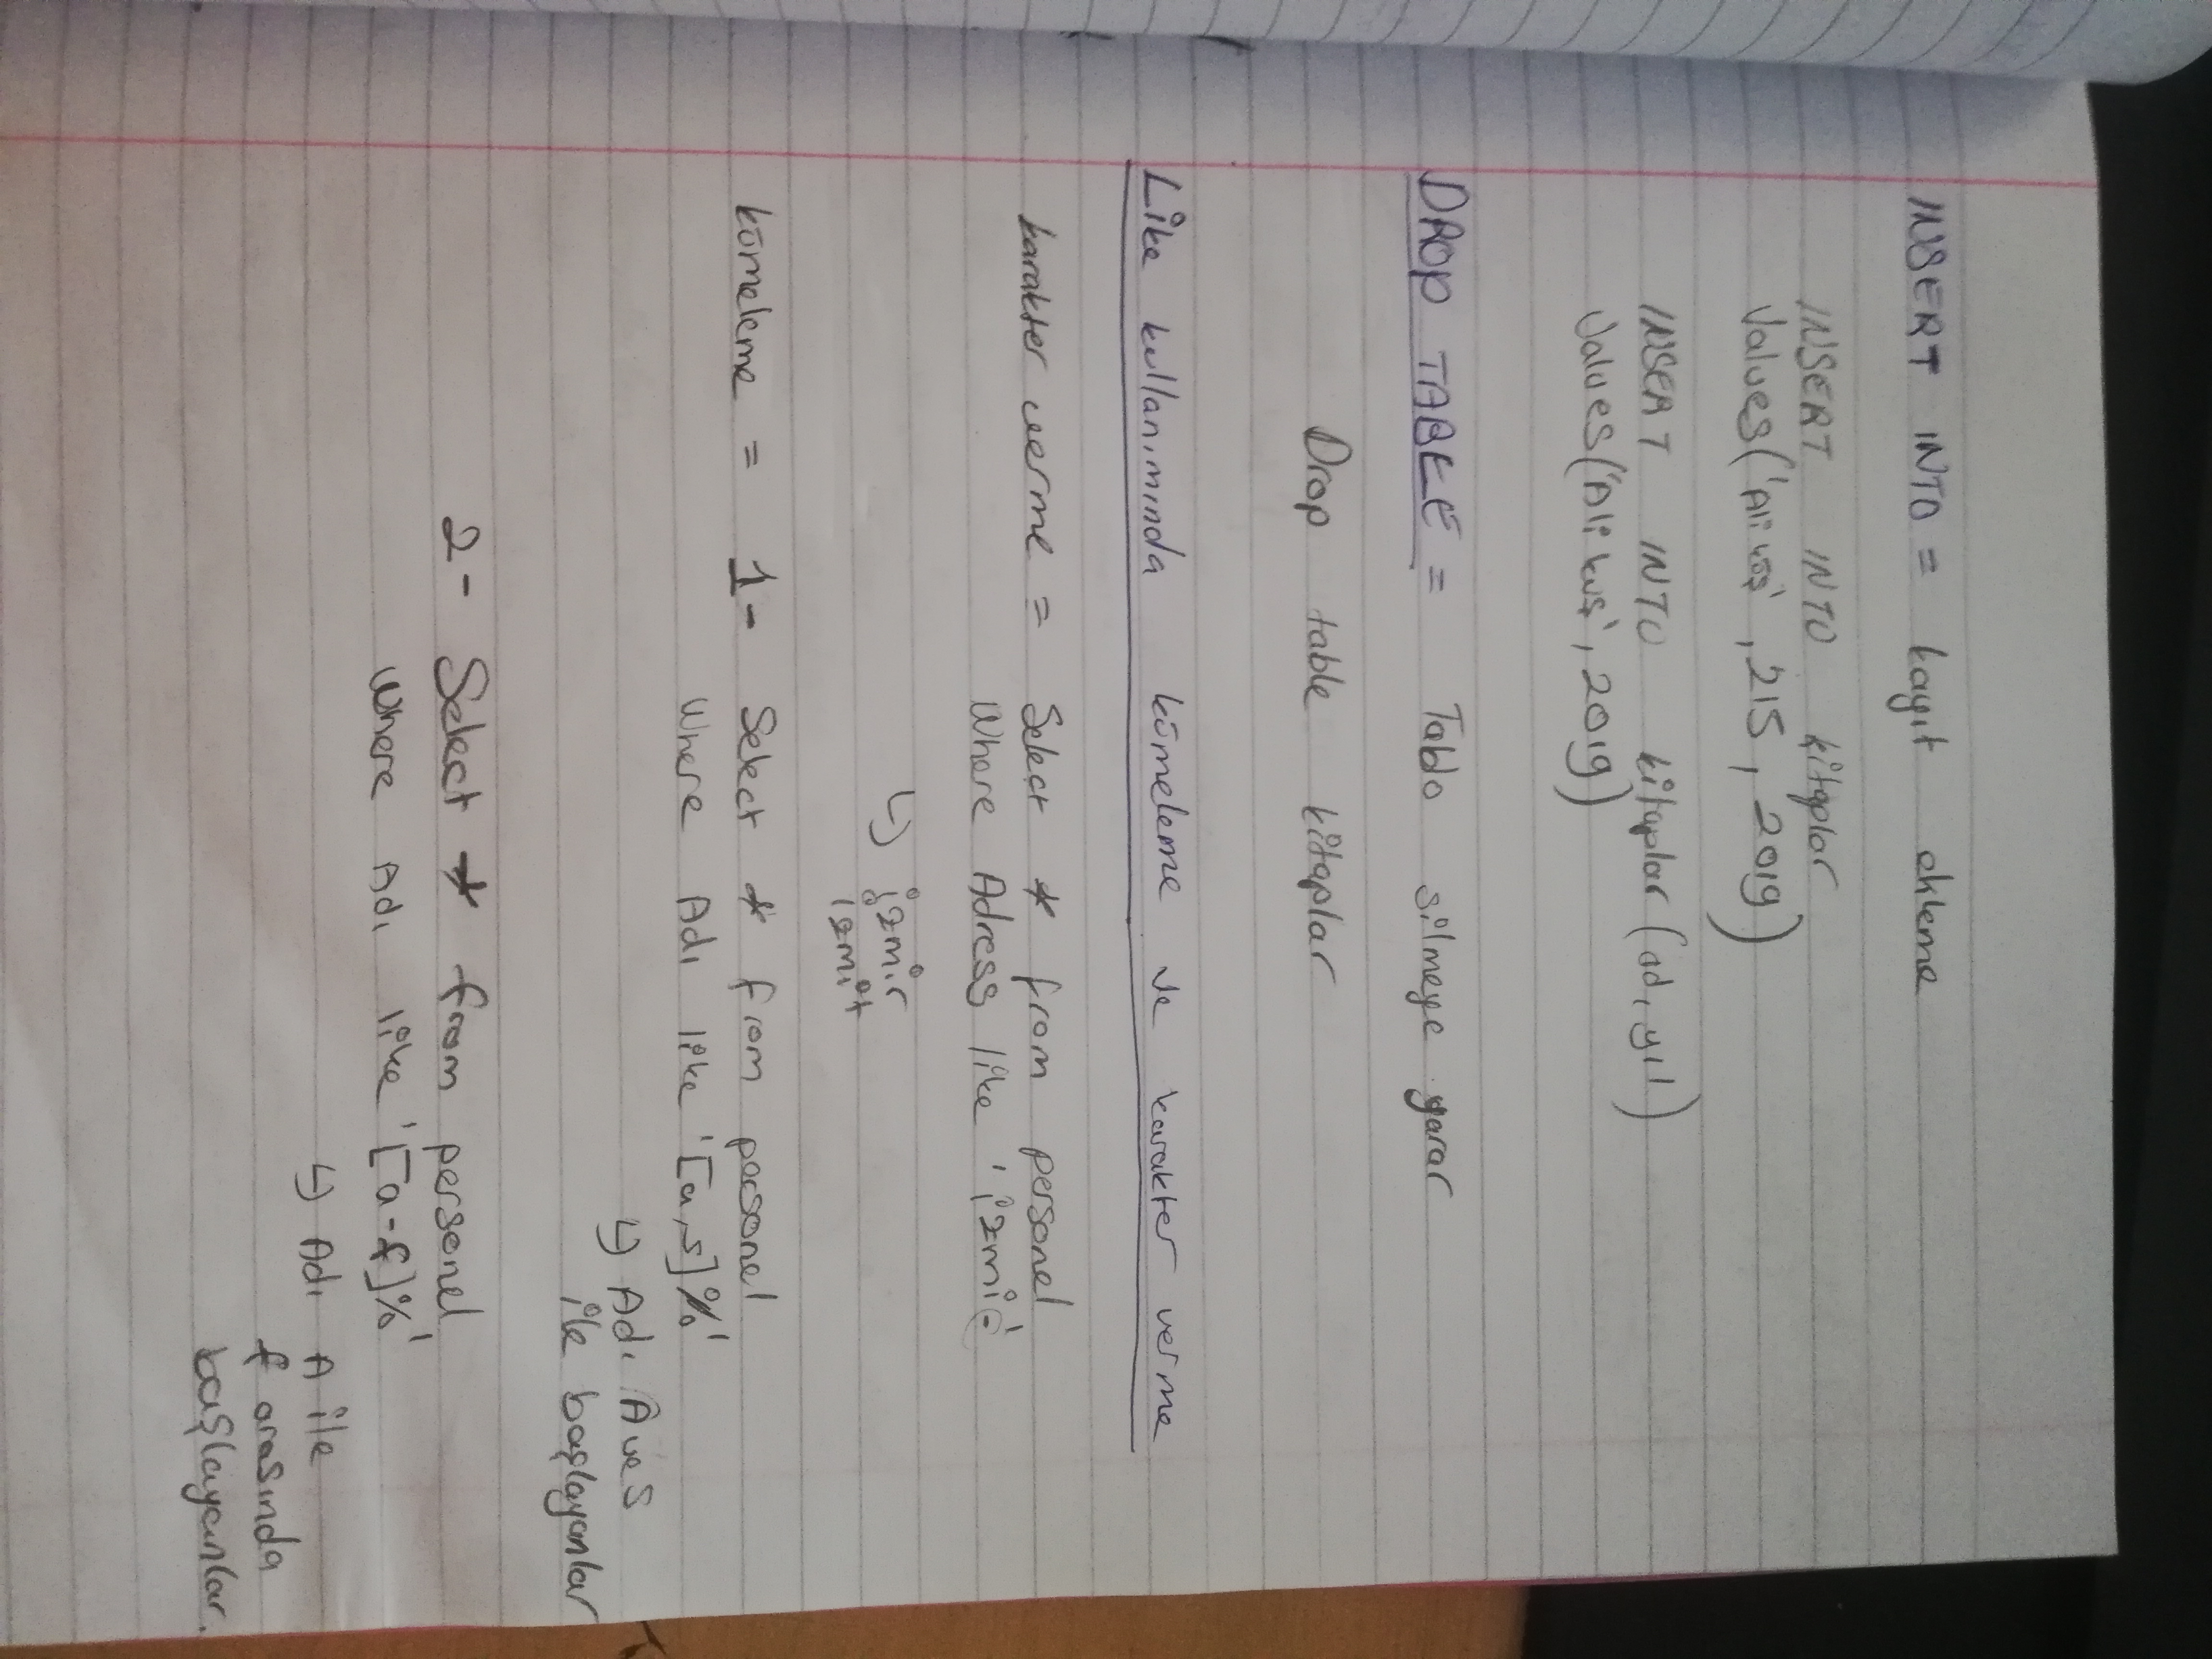 INSERT INTO = kayıt ekleme
INSERT INTO kitaplar
Values('Ali kuş', 215, 2019)
INSERT INTO kitaplar (ad, yıl)
Values('Ali kuş', 2019)
DROP TABLE = Tablo silmeye yarar
Drop table kitaplar
Like kullanımında kümeleme ve karakter verme
karakter verme = Select * from personel
Where Adress like 'izmi-'
↳ izmir
izmit
kümeleme = 1- Select * from personel
Where Adı like '[a,s]%'
↳ Adı A ve S
ile başlayanlar
2- Select * from personel
Where Adı like '[a-f]%'
↳ Adı A ile
f arasında
başlayanlar.